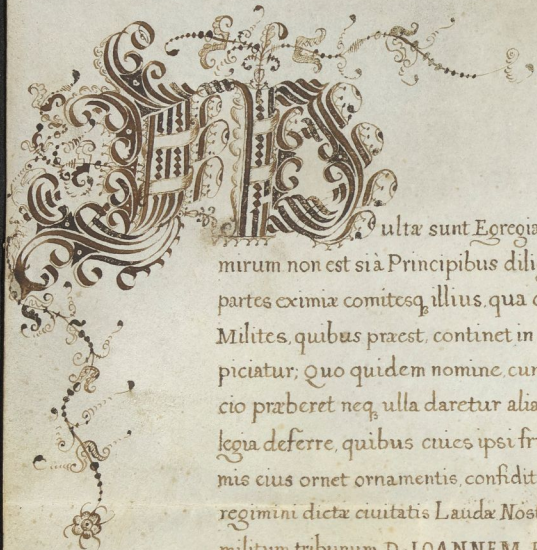 Multæ sunt Egregia
mirum non est si à Principibus dili
partes eximiæ comitesq; illius, qua
Milites, quibus præest, continet in
piciatur; Quo quidem nomine, cur
cio præberet neq; ulla daretur alia
legia deferre, quibus ciues ipsi fr
mis eius ornet ornamentis, confidit
regimini dictæ ciuitatis Laudæ Nos
militum tribunum D. IOANNEM